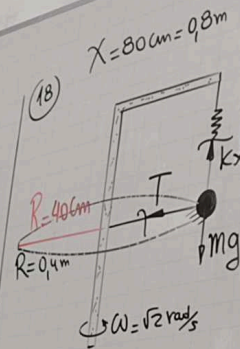 X=80cm=0,8m
18
R=40cm
T
Kx
R=0,4m
mg
ω=√2 rad/s